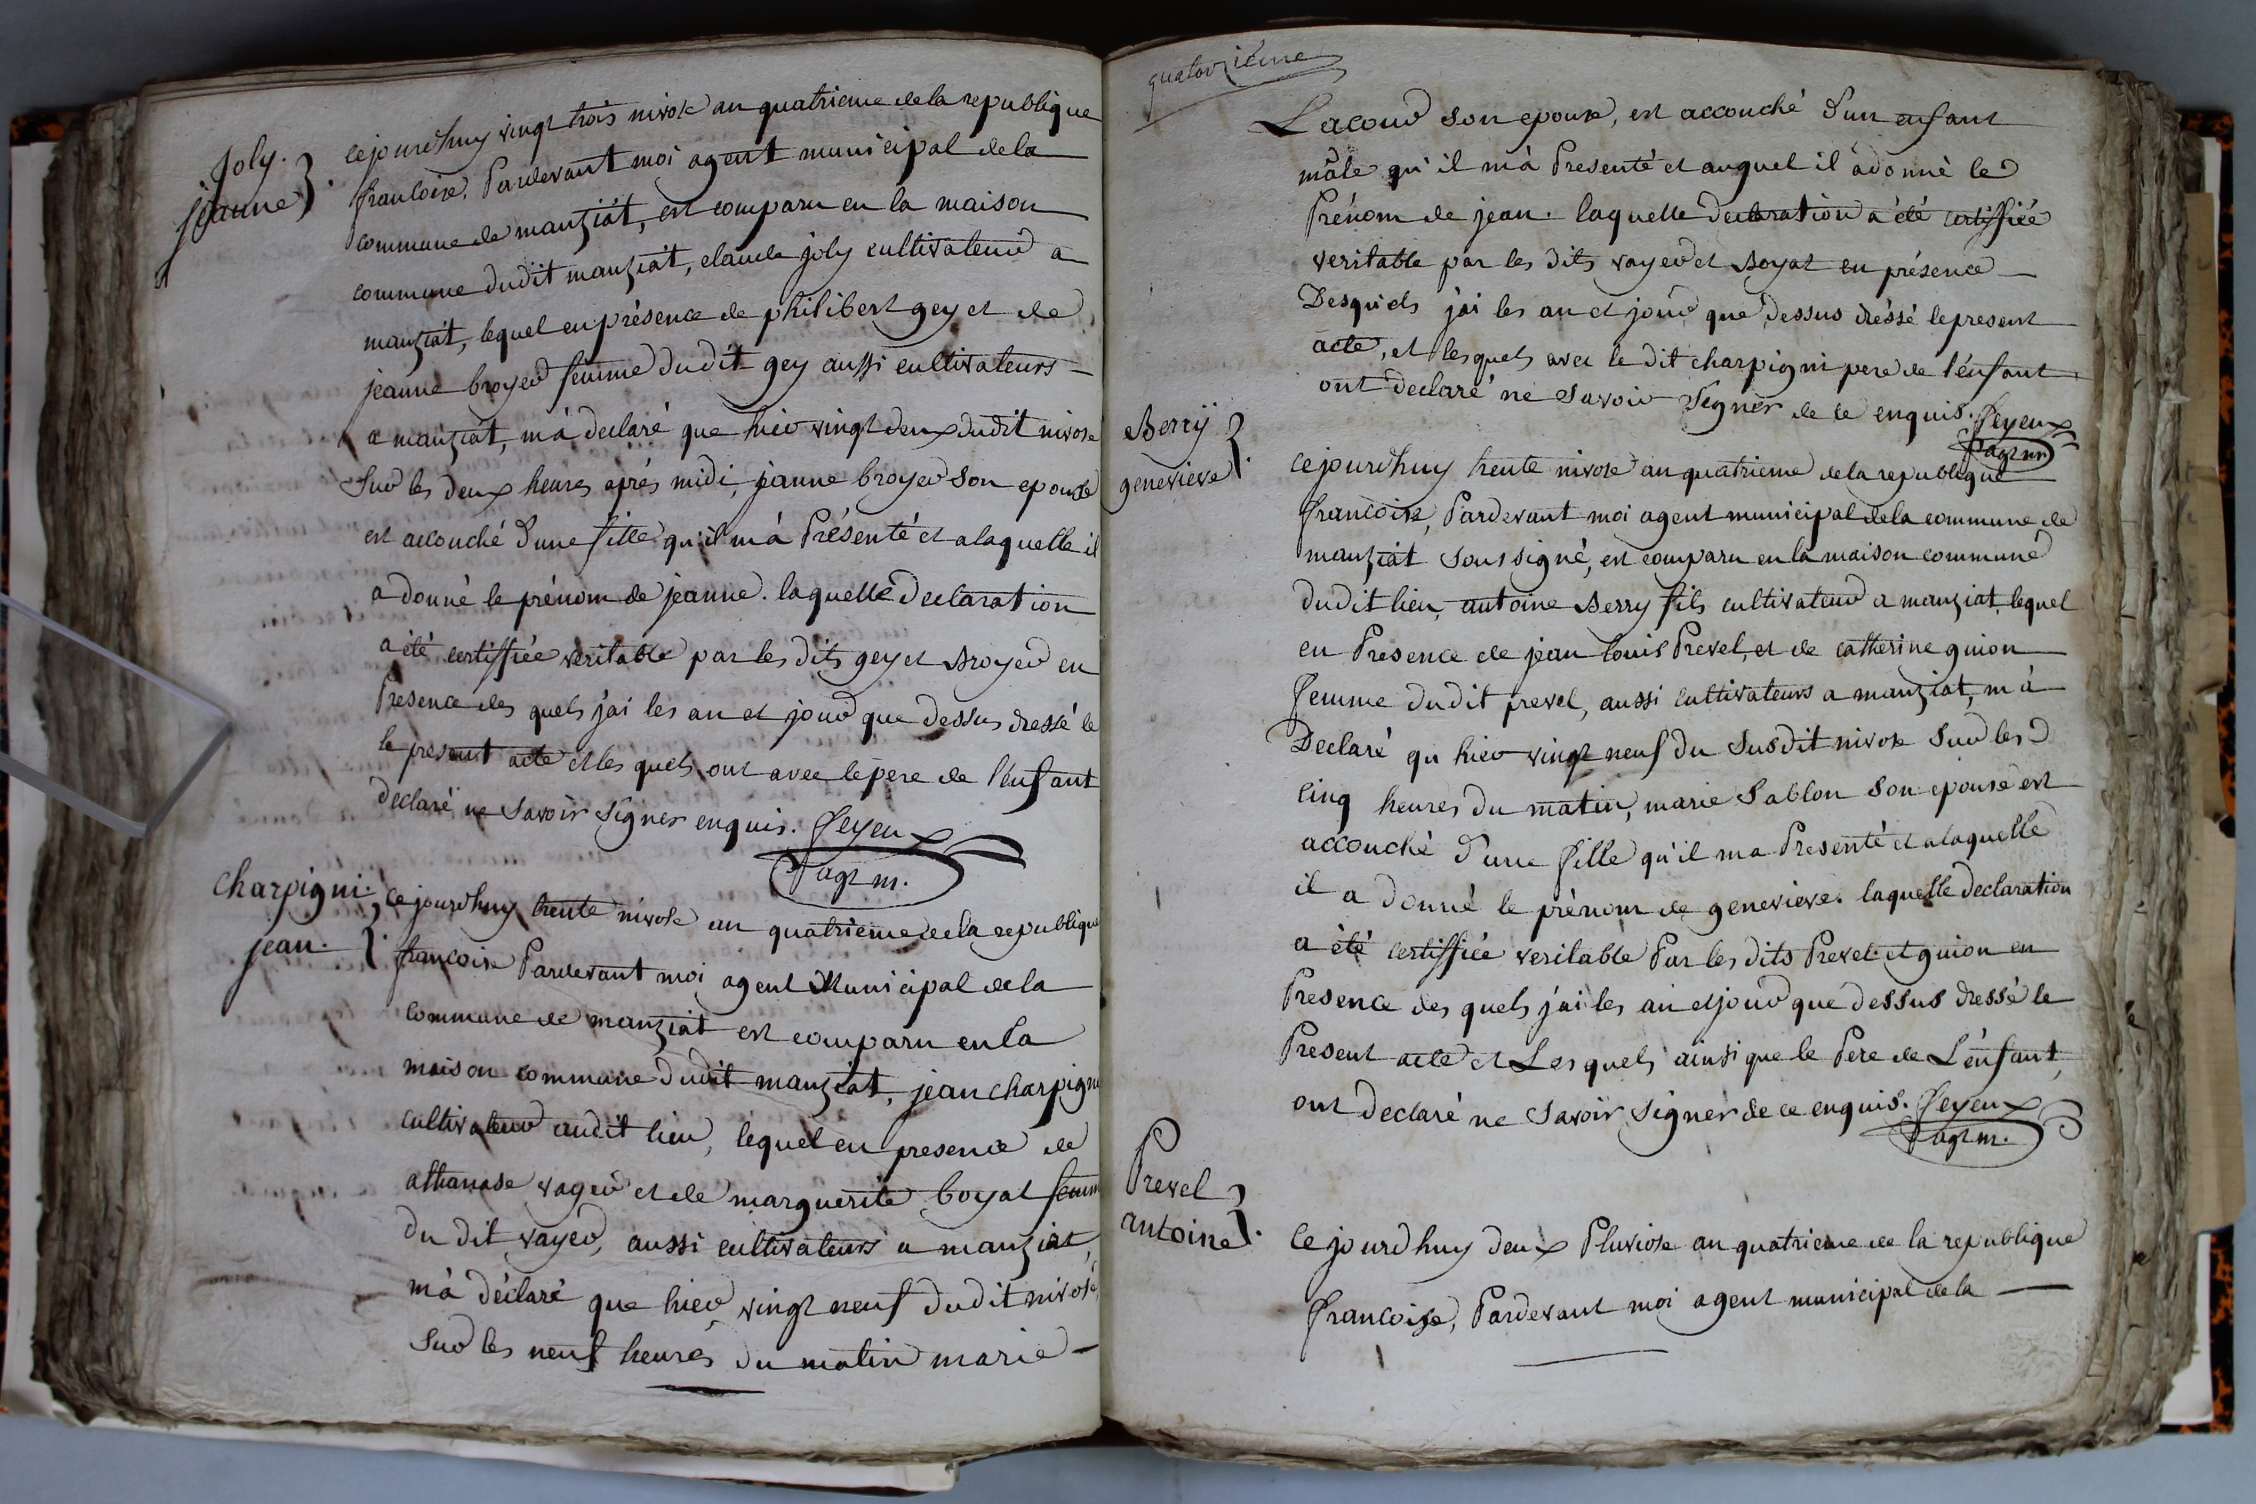 Joly.
jeanne
cejourd'huy vingt trois nivose an quatrieme de la republique
francoise. Pardevant moi agent municipal de la
commune de manziat, est comparu en la maison
commune dudit manziat, claude joly cultivateur a
manziat, lequel en présence de philibert gey et de
jeanne broyer femme dudit gey aussi cultivateurs
a manziat, m'a declaré que hier vingt deux dudit nivose
Sur les deux heures aprés midi, jeanne broyer Son epouse
est accouché d'une fille qu'il m'à Présenté et a laquelle il
a donné le prénom de jeanne. laquelle declaration
a été certiffiée veritable par les dits gey et Broyer en
Presence des quels j'ai les an et jour que dessus dressé le
le present acte et les quels ont avec le pere de l'énfant
declaré ne Savoir Signer enquis. feyeux
agt m.
Charpigni.
jean.
Ce jourd'huy trente nivose an quatrieme de la republique
francoise Pardevant moi agent Municipal de la
commune de manziat est comparu en la
maison commune dudit manziat, jean charpigni
cultivateur audit lieu, lequel en presence de
athanase vayer et de marguerite boyat femme
du dit vayer, aussi cultivateurs a manziat,
m'à déclaré que hier, vingt neuf dudit nivose,
Sur les neuf heures du matin marie
quatorzieme
Lacour Son epouse, est accouché d'un enfant
mâle qu'il m'à Presenté et auquel il à donné le
Prénom de jean. laquelle declaration a été certiffiée
veritable par les dits vayer et Boyat en présence
Desquels j'ai les an et jour que dessus dréssé le present
acte, et lesquels avec le dit charpigni pere de l'énfant
ont declaré ne Savoir Signer de ce enquis. feyeux
agt m
Berry
genevieve
Cejourd'huy trente nivose an quatrieme de la republique
francoise, Pardevant moi agent municipal de la commune de
manziat Soussigné, est comparu en la maison commune
dudit lieu, antoine Berry fils cultivateur a manziat, lequel
en Presence de jean louis Prevel, et de catherine guion
femme dudit prevel, aussi cultivateurs a manziat, m'à
Declaré qu'hier vingt neuf du Susdit nivose Sur les
cinq heures du matin, marie Sablon Son epouse est
accouché d'une fille qu'il m'a Presenté et a laquelle
il a donné le prénom de genevieve. laquelle declaration
a été certiffiée veritable Par les dits Prevel et guion en
Presence des quels j'ai les an et jour que dessus dressé le
Present acte et Les quels ainsi que le Pere de L'énfant,
ont declaré ne Savoir Signer de ce enquis. feyeux
agt m.
Prevel
antoine
Ce jourd'huy deux Pluviose an quatrieme de la republique
francoise, Pardevant moi agent municipal de la